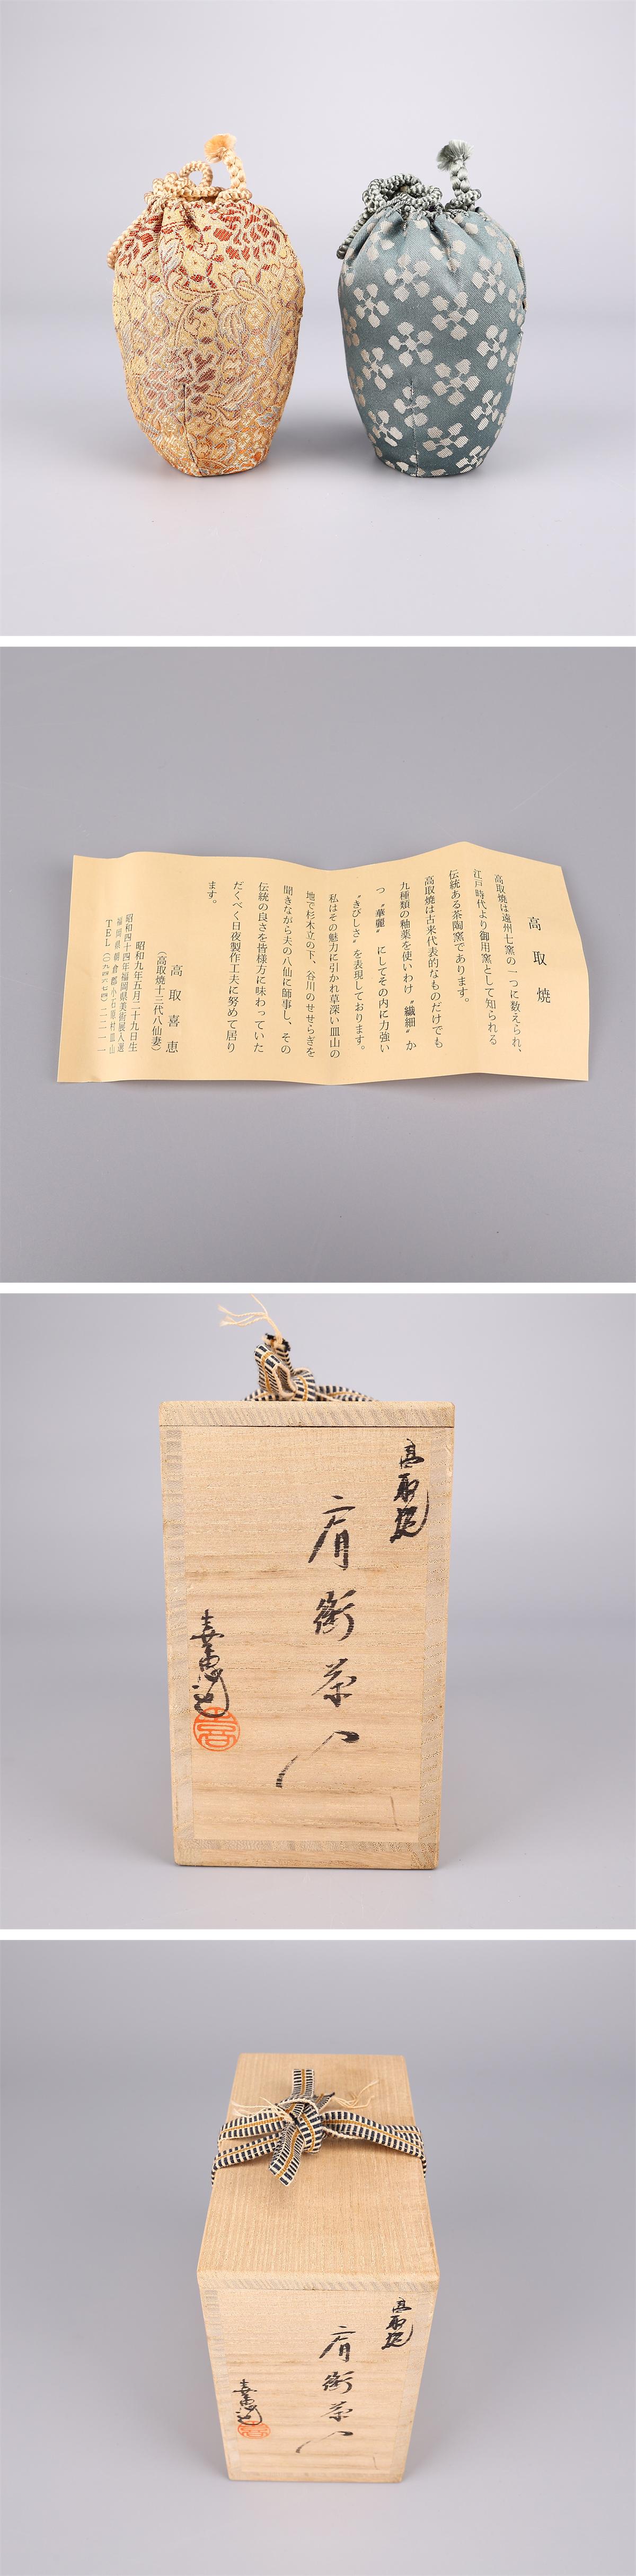 高取焼
高取焼は遠州七窯の一つに数えられ、
江戸時代より御用窯として知られる
伝統ある茶陶窯であります。
高取焼は古来代表的なものだけでも
九種類の釉薬を使いわけ〝繊細〟か
つ〝華麗〟にしてその内に力強い
〝きびしさ〟を表現しております。
私はその魅力に引かれ草深い皿山の
地で杉木立の下、谷川のせせらぎを
聞きながら夫の八仙に師事し、その
伝統の良さを皆様方に味わっていた
だくべく日夜製作工夫に努めて居り
ます。
高取喜恵
(高取焼十三代八仙妻)
昭和九年五月二十九日生
昭和四十四年福岡県美術展入選
福岡県朝倉郡小石原村皿山
TEL
高取焼
肩衝茶入
喜恵造
高取焼
肩衝茶入
喜恵造